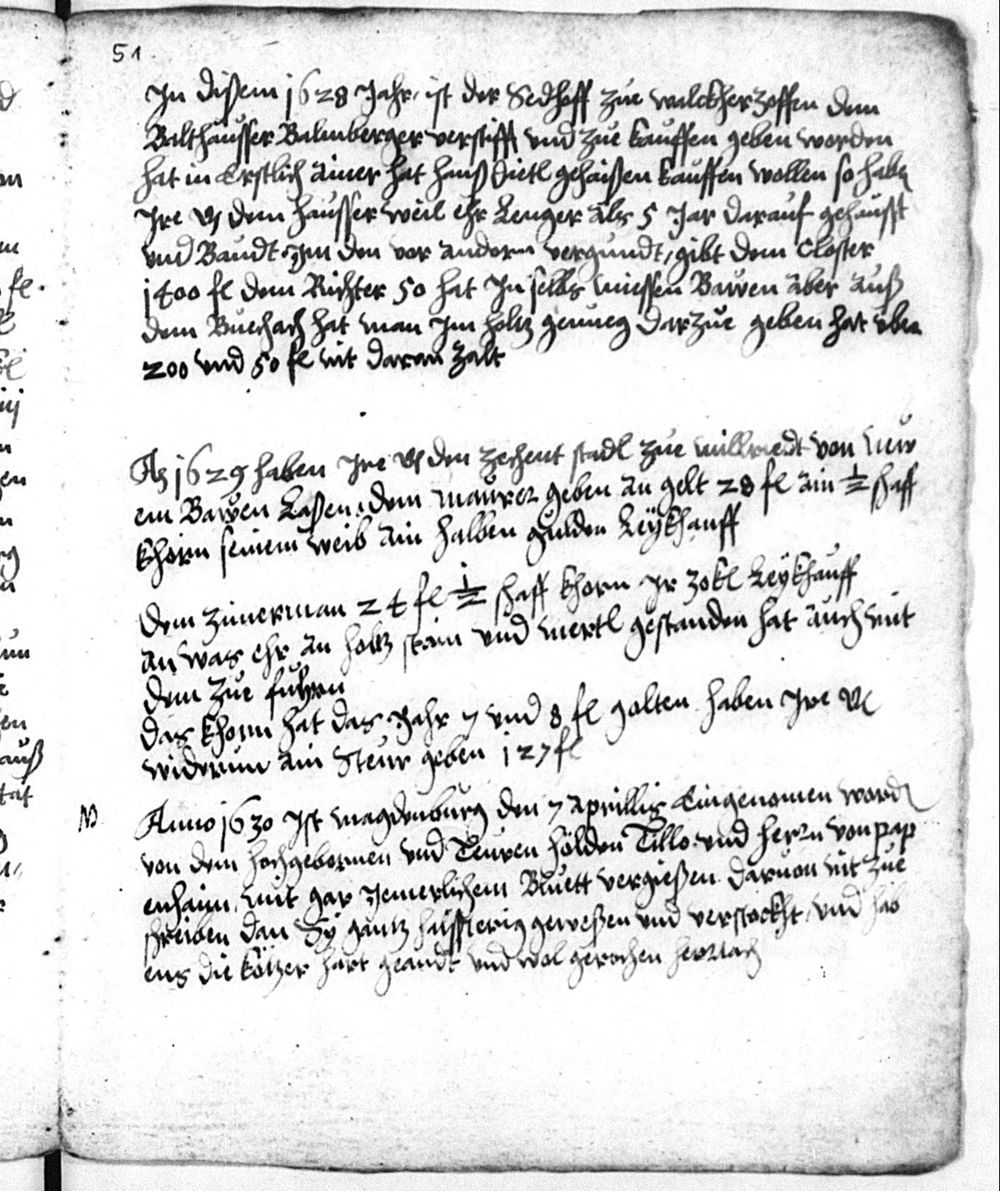 51
In disem 1628 Jahr, ist der Sedhoff zue walckherzoffen dem
Balthausser Balmberger verstifft vnd zue kauffen geben worden
hat in Erstlich ainer hat hanß dietl gehaißen kauffen wollen so haben
Ire dem Hausser weil ehr Lenger als 5 Jar darauf gehaust
vnd Baudt Im den vor andern vergundt, gibt dem Closter
1400 fl dem Richter 50 hat In selbs miessen Bawen aber auß
dem Buechach hat man Im holtz genueg darzue geben hat vber
200 vnd 50 fl nit daran zalt
Ao 1629 haben Ire den zechent stadl zue millriedt von new
em Bawen Laßen, dem maurer geben an gelt 28 fl ain ½ schaff
khorn seinem weib ain halben gulden Leÿkhauff
dem zimerman 24 fl ½ schaff khorn Ir Leÿkhauff
an was ehr an holtz stain vnd mertl gestanden hat auch mit
dem zue fuhrn
das khorn hat das Jahr 7 vnd 8 fl golten haben Ire
widerum ain Steur geben 127 fl
NB Anno 1630 Ist magdenburg den 7 Aprillis Eingenomen worden
von dem hochgebornen vnd Teuren hölden Tillo vnd herrn von pap
enhaim, mit gar Jemerlichem Bluett vergießen daruon nit zue
schreiben dan Sÿ gantz gewesen vnd verstockht, vnd hab
ens die kötzer hart geandt vnd wol gerochen hernach